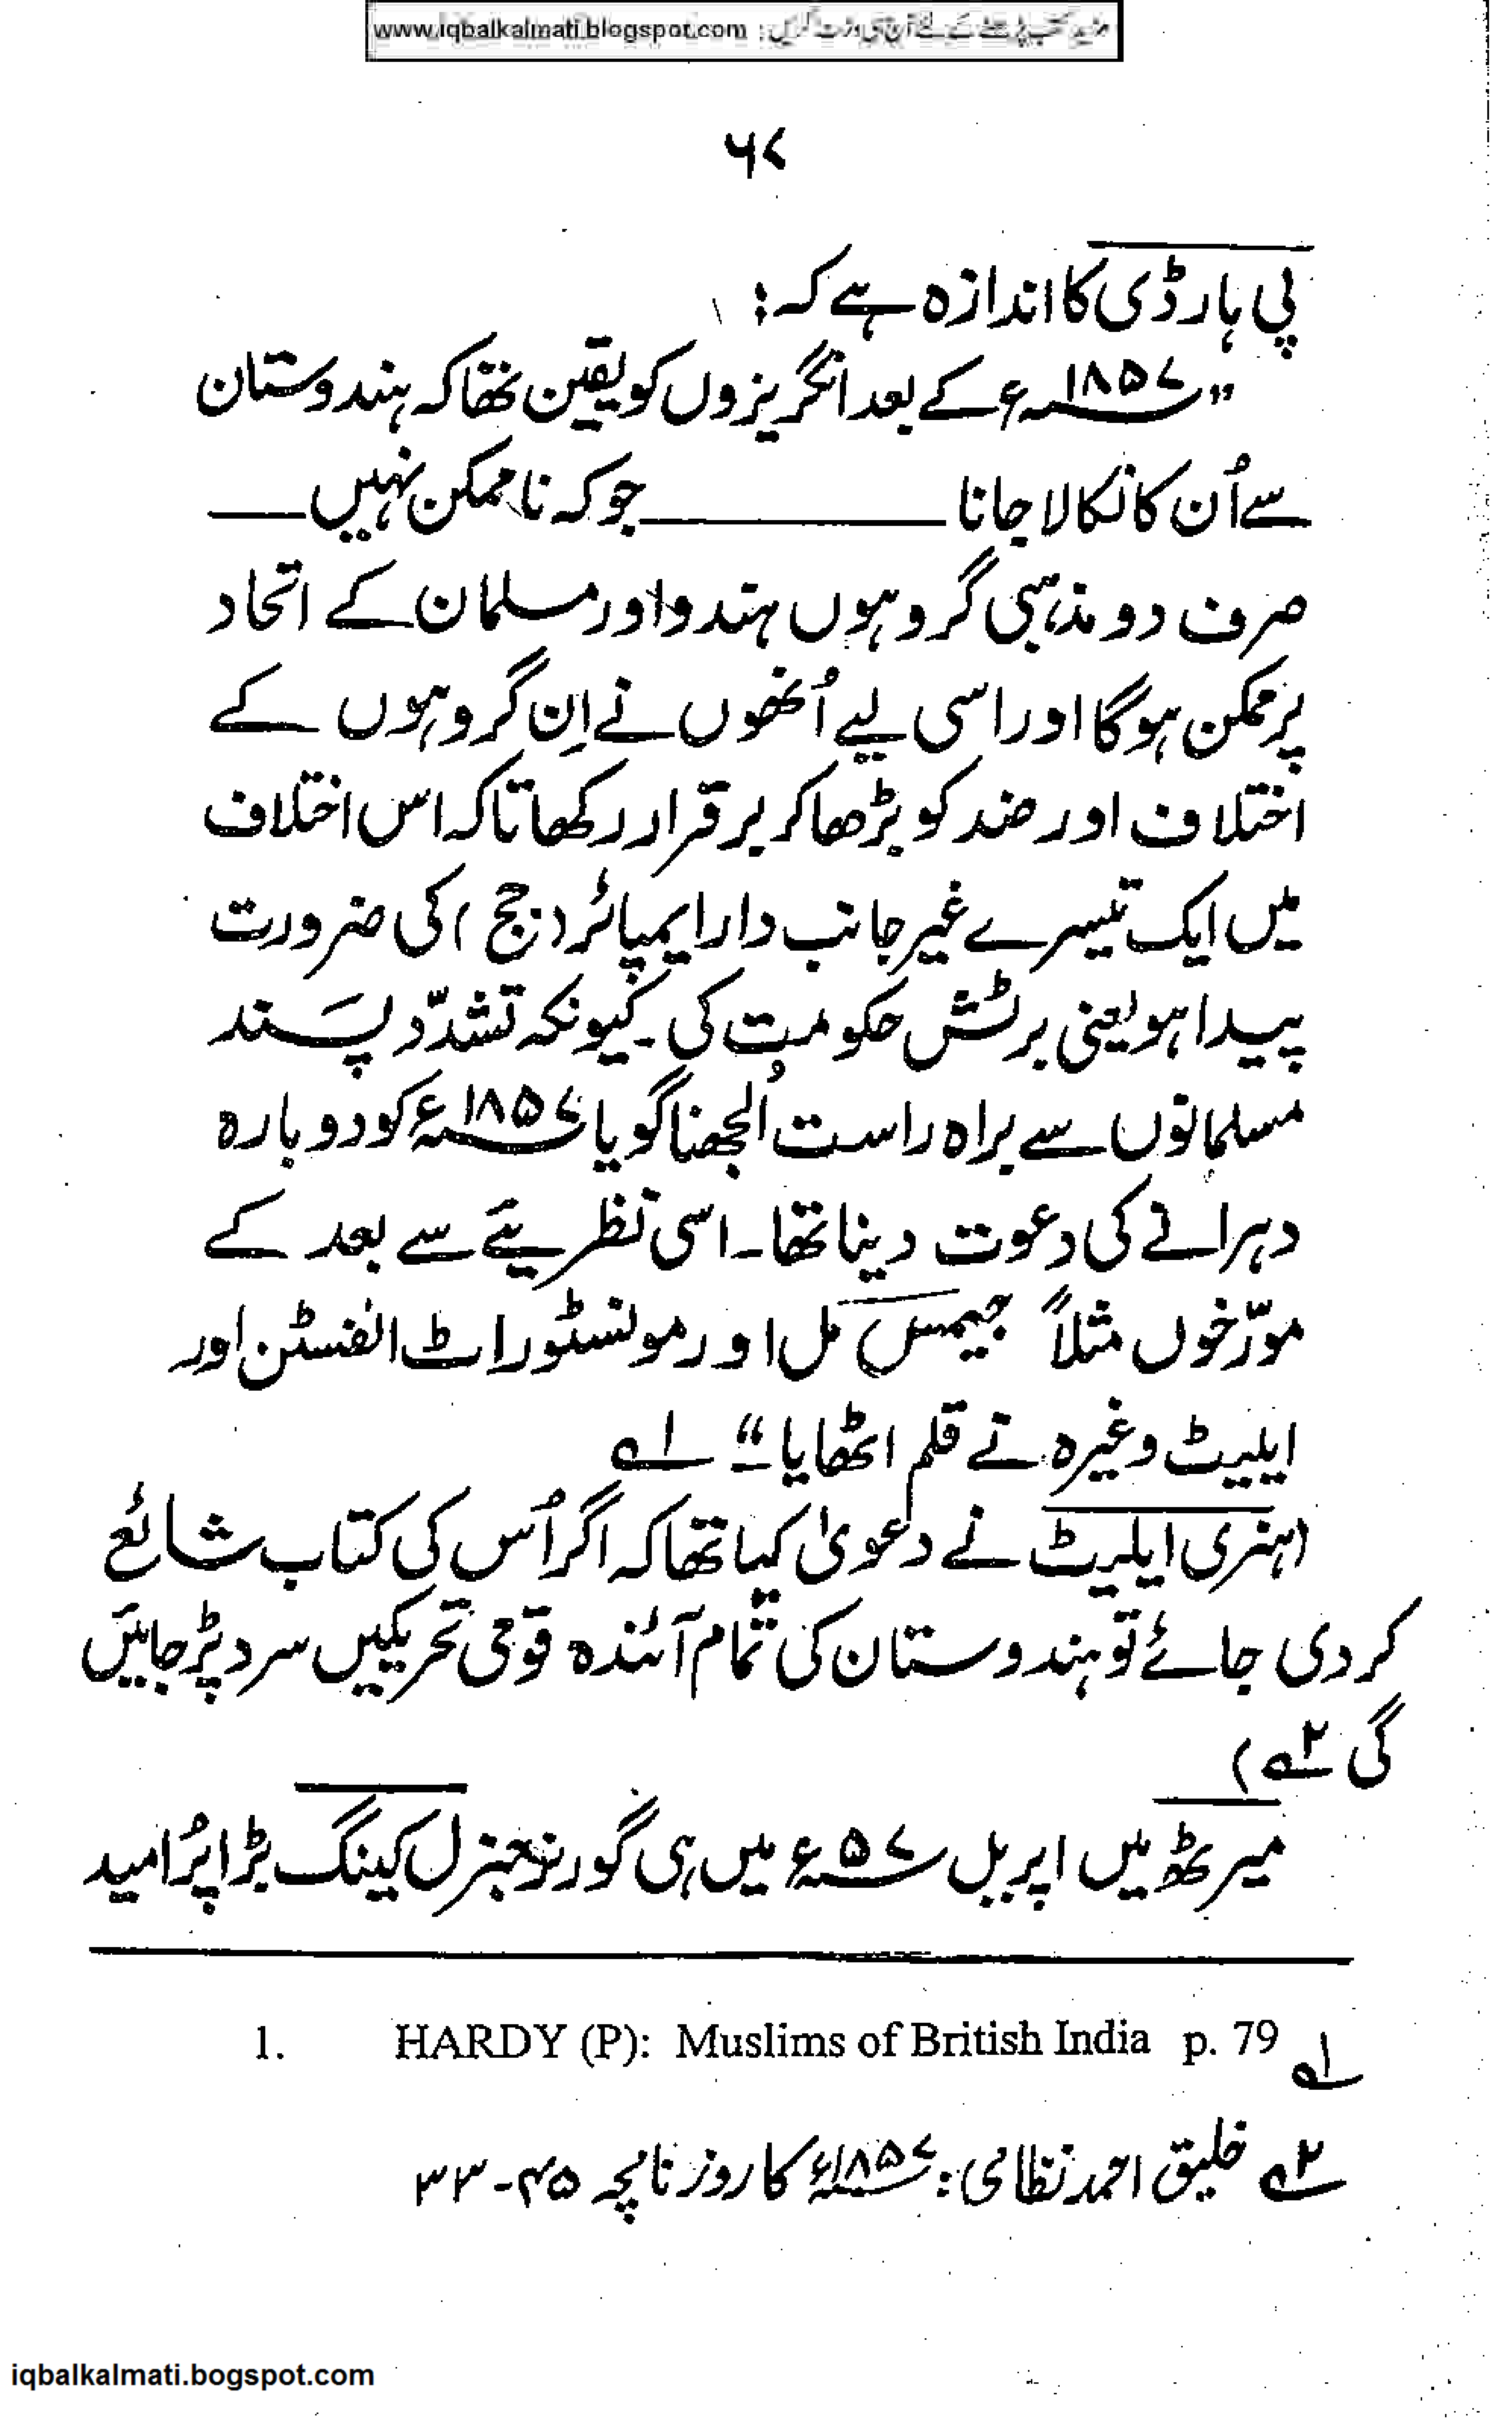 www.iqbalkalmati.blogspot.com : مزید کتب پڑھنے کے لئے آج ہی وزٹ کریں
۶۷
پی ہارڈی کا اندازہ ہے کہ :
"۱۸۵۷ء کے بعد انگریزوں کو یقین تھا کہ ہندوستان
سے اُن کا نکالا جانا ـــــــــ جو کہ ناممکن نہیں ـــــ
صرف دو مذہبی گروہوں ہندو اور مسلمان کے اتحاد
پر ممکن ہوگا اور اسی لیے اُنھوں نے اِن گروہوں کے
اختلاف اور ضد کو بڑھا کر برقرار رکھا تاکہ اس اختلاف
میں ایک تیسرے غیر جانب دار ایمپائر (جج) کی ضرورت
پیدا ہو یعنی برٹش حکومت کی۔ کیونکہ تشدّد پسند
مسلمانوں سے براہ راست اُلجھنا گویا ۱۸۵۷ء کو دوبارہ
دہرانے کی دعوت دینا تھا۔ اسی نظریئے سے بعد کے
مورّخوں مثلاً جیمس مل اور مونسٹوراٹ الفسٹن اور
ایلیٹ وغیرہ نے قلم اٹھایا۔" ۱ہ
(ہنری ایلیٹ نے دعویٰ کیا تھا کہ اگر اُس کی کتاب شائع
کر دی جائے تو ہندوستان کی تمام آئندہ قومی تحریکیں سرد پڑ جائیں
گی ۲ہ)
میرٹھ میں اپریل ۵۷ء میں ہی گورنر جنرل کیننگ بڑا پُرامید
1. HARDY (P): Muslims of British India p. 79 ۱ہ
۲ہ خلیق احمد نظامی : ۱۸۵۷ء کا روزنامچہ ۴۵-۳۳
iqbalkalmati.bogspot.com